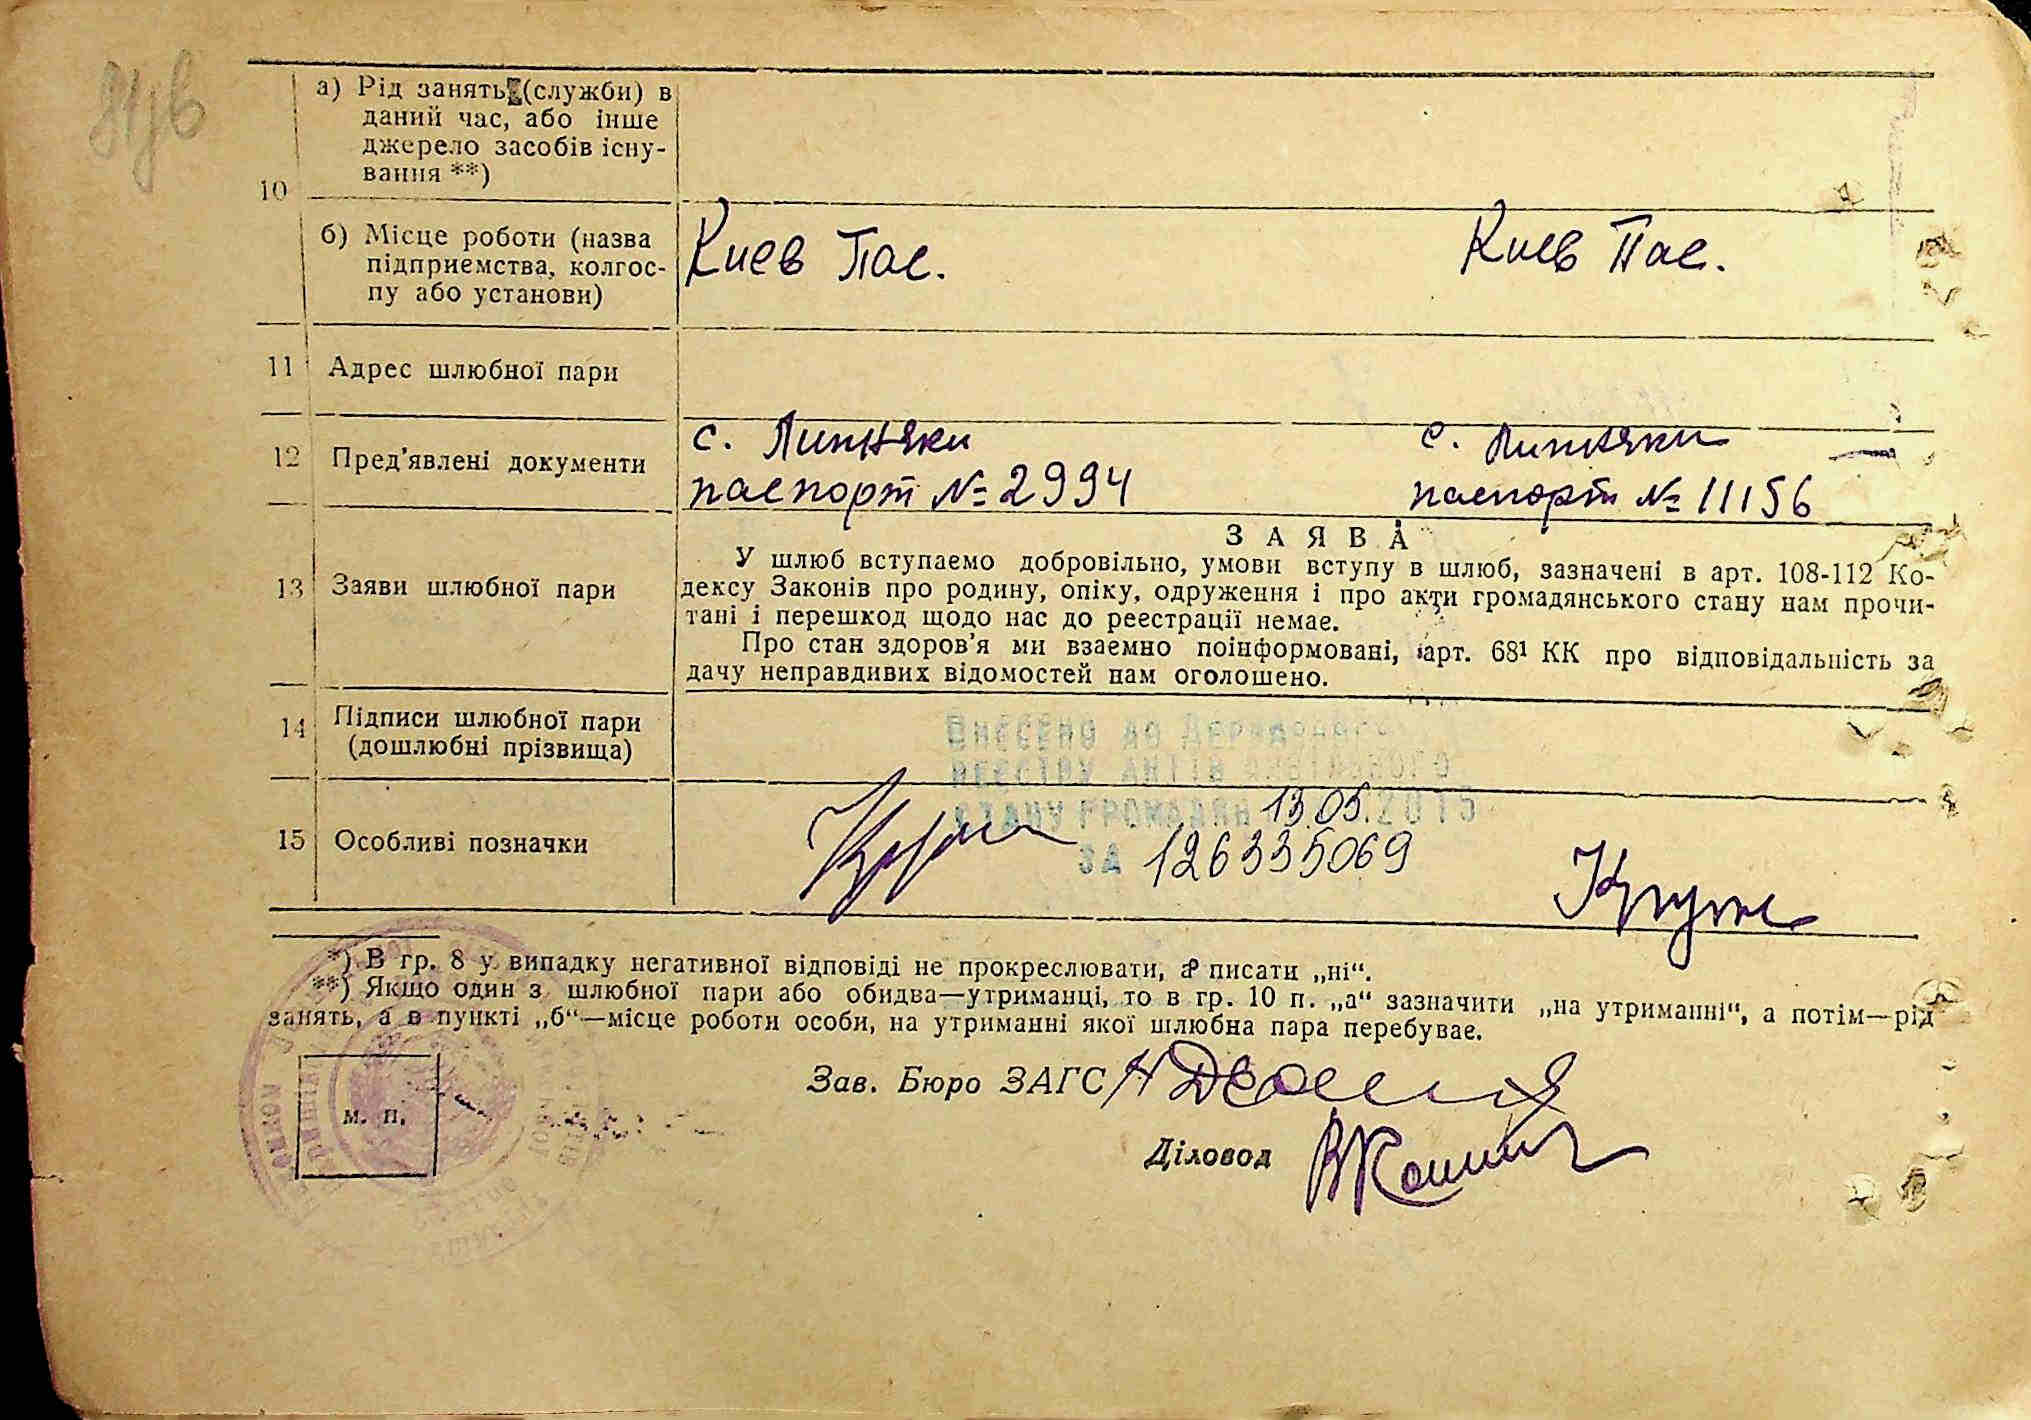 10
а) Рід занять (служби) в
даний час, або інше
джерело засобів існу-
вання **)
б) Місце роботи (назва
підприємства, колгос-
пу або установи)
Киев Пас.
Киев Пас.
11 Адрес шлюбної пари
с. Липняки
с. Липняки
12 Пред'явлені документи
паспорт № 2994
паспорт № 11156
13 Заяви шлюбної пари
ЗАЯВА
У шлюб вступаємо добровільно, умови вступу в шлюб, зазначені в арт. 108-112 Ко-
дексу Законів про родину, опіку, одруження і про акти громадянського стану нам прочи-
тані і перешкод щодо нас до реєстрації немає.
Про стан здоров'я ми взаємно поінформовані, арт. 68¹ КК про відповідальність за
дачу неправдивих відомостей нам оголошено.
14 Підписи шлюбної пари
(дошлюбні прізвища)
Внесено до Державного
реєстру актів цивільного
стану громадян 13.05.2015
за 126335069
15 Особливі позначки
*) В гр. 8 у випадку негативної відповіді не прокреслювати, а писати „ні“.
**) Якщо один з шлюбної пари або обидва—утриманці, то в гр. 10 п. „а“ зазначити „на утриманні“, а потім—рід
занять, а в пункті „б“—місце роботи особи, на утриманні якої шлюбна пара перебуває.
Зав. Бюро ЗАГС
м. п.
Діловод